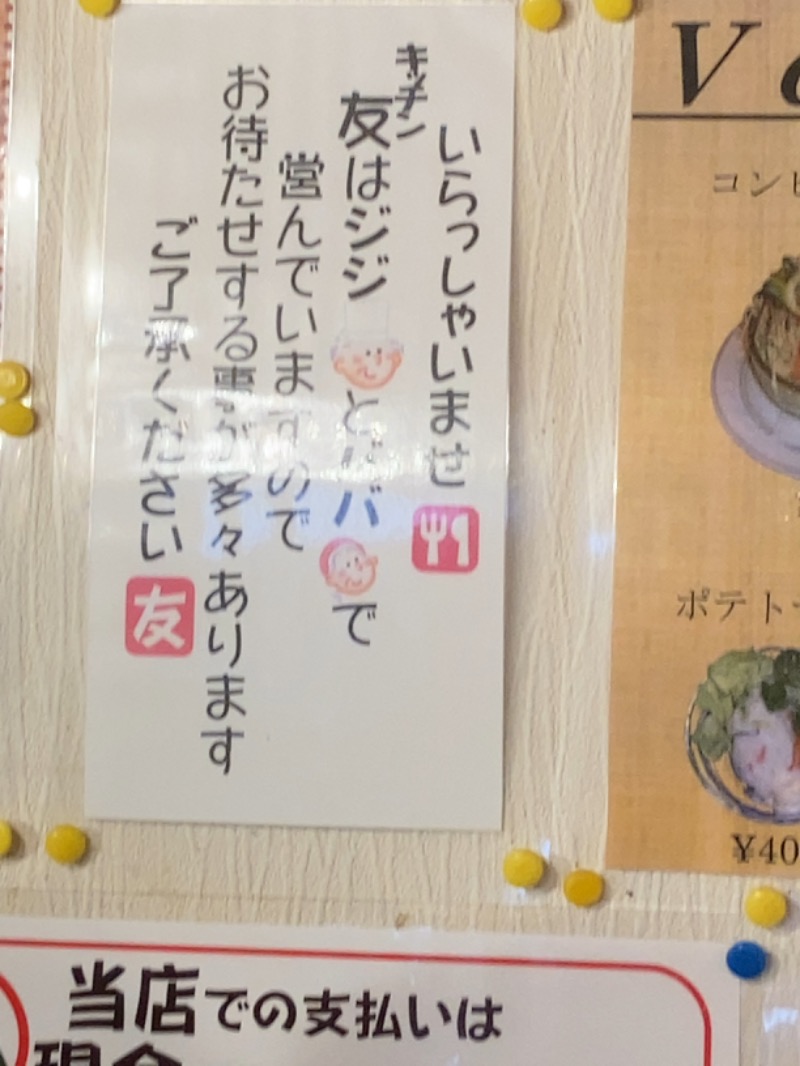 いらっしゃいませ
キッチン
友はジジとババで
営んでいますので
お待たせする事が多々あります
ご了承ください
友
コンビ
ポテト
¥40
当店での支払いは
現金